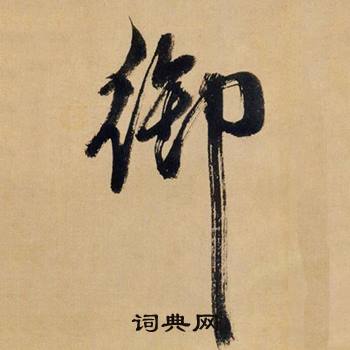 御
词典网